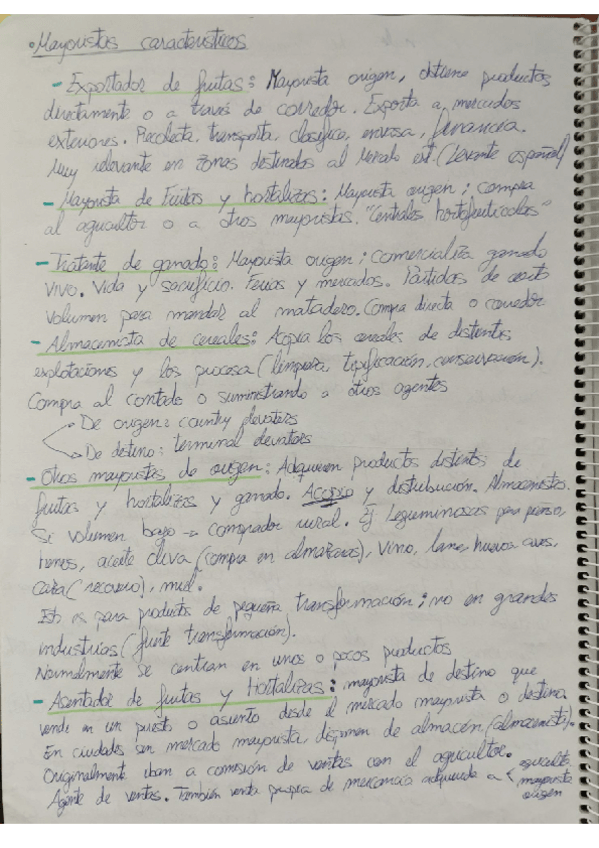 • Mayoristas característicos
- Exportador de frutas: Mayorista origen, obtiene productos
directamente o a través de corredor. Exporta a mercados
exteriores. Recolecta, transporta, clasifica, envasa, financia.
Muy relevante en zonas destinadas al Mercado ext. (Levante español)
- Mayorista de Frutas y hortalizas: Mayorista origen; compra
al agricultor o a otros mayoristas. "Centrales hortofrutícolas"
- Tratante de ganado: Mayorista origen; comercializa ganado
vivo. Vida y sacrificio. Ferias y mercados. Partidas de cierto
volumen para mandar al matadero. Compra directa o corredor
- Almacenista de cereales: Acopia los cereales de distintas
explotaciones y los procesa (limpieza, tipificación, conservación).
Compra al contado o suministrando a otros agentes
De origen: country elevators
De destino: terminal elevators
- Otros mayoristas de origen: Adquieren productos distintos de
frutas y hortalizas y ganado. Acopio y distribución. Almacenistas.
Si volumen bajo → comprador rural. Ej Leguminosas para pienso,
henos, aceite oliva (compra en almazaras), vino, lana, huevos, aves,
caza (recovero), miel.
Esto es para productos de pequeña transformación; no en grandes
industrias (fuerte transformación).
Normalmente se centran en unos o pocos productos
- Asentador de frutas y Hortalizas: mayorista de destino que
vende en un puesto o asiento desde el mercado mayorista o destino
En ciudades sin mercado mayorista, disponen de almacén (almacenista).
Originalmente iban a comisión de ventas con el agricultor.
Agente de ventas. También venta propia de mercancía adquirida a < agricultor
mayorista
origen